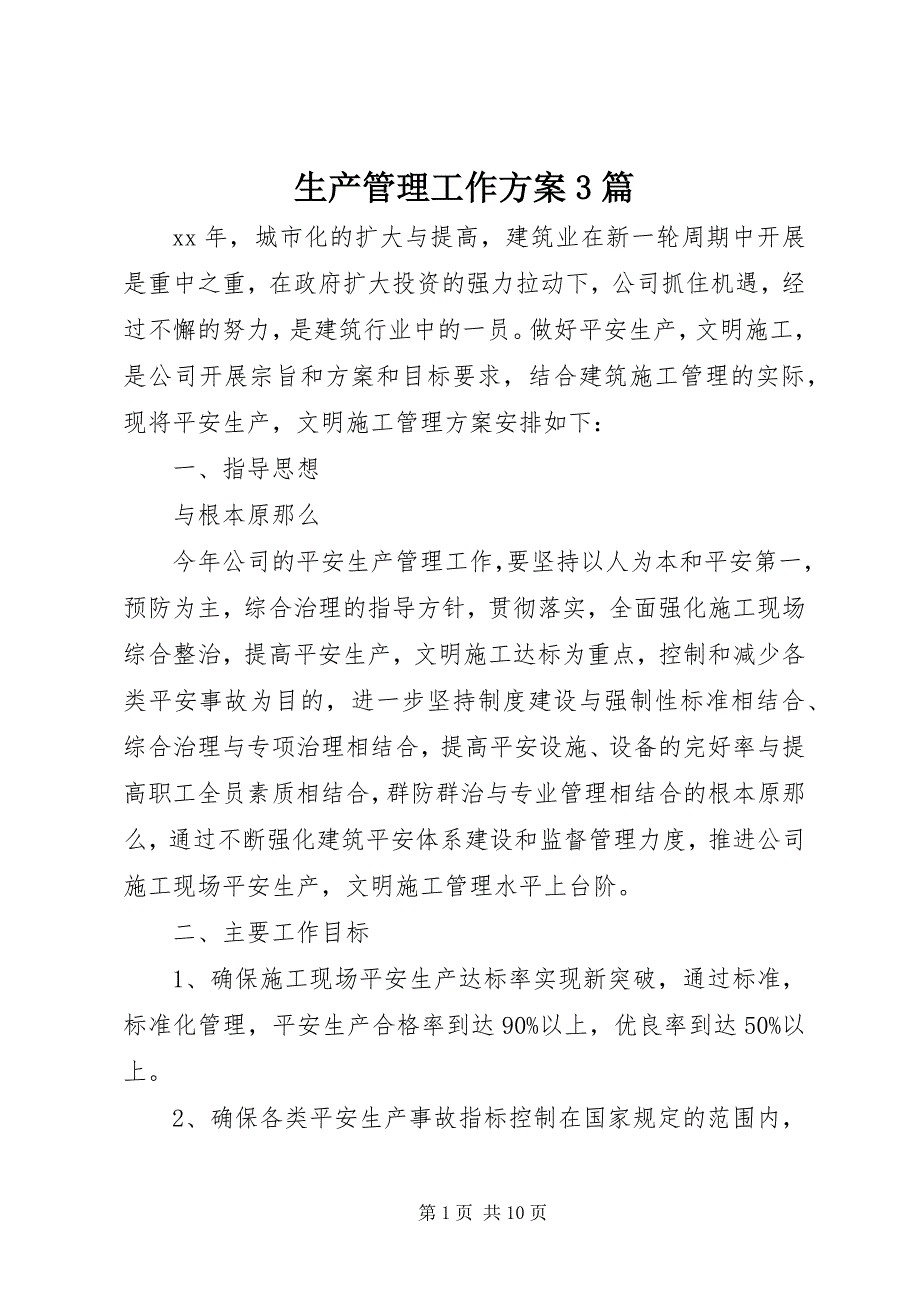 生产管理工作方案 3 篇
xx 年，城市化的扩大与提高，建筑业在新一轮周期中开展
是重中之重，在政府扩大投资的强力拉动下，公司抓住机遇，经
过不懈的努力，是建筑行业中的一员。做好平安生产，文明施工，
是公司开展宗旨和方案和目标要求，结合建筑施工管理的实际，
现将平安生产，文明施工管理方案安排如下：
一、指导思想
与根本原那么
今年公司的平安生产管理工作，要坚持以人为本和平安第一，
预防为主，综合治理的指导方针，贯彻落实，全面强化施工现场
综合整治，提高平安生产，文明施工达标为重点，控制和减少各
类平安事故为目的，进一步坚持制度建设与强制性标准相结合、
综合治理与专项治理相结合，提高平安设施、设备的完好率与提
高职工全员素质相结合，群防群治与专业管理相结合的根本原那
么，通过不断强化建筑平安体系建设和监督管理力度，推进公司
施工现场平安生产，文明施工管理水平上台阶。
二、主要工作目标
1、确保施工现场平安生产达标率实现新突破，通过标准，
标准化管理，平安生产合格率到达 90%以上，优良率到达 50%以
上。
2、确保各类平安生产事故指标控制在国家规定的范围内，
第 1 页 共 10 页